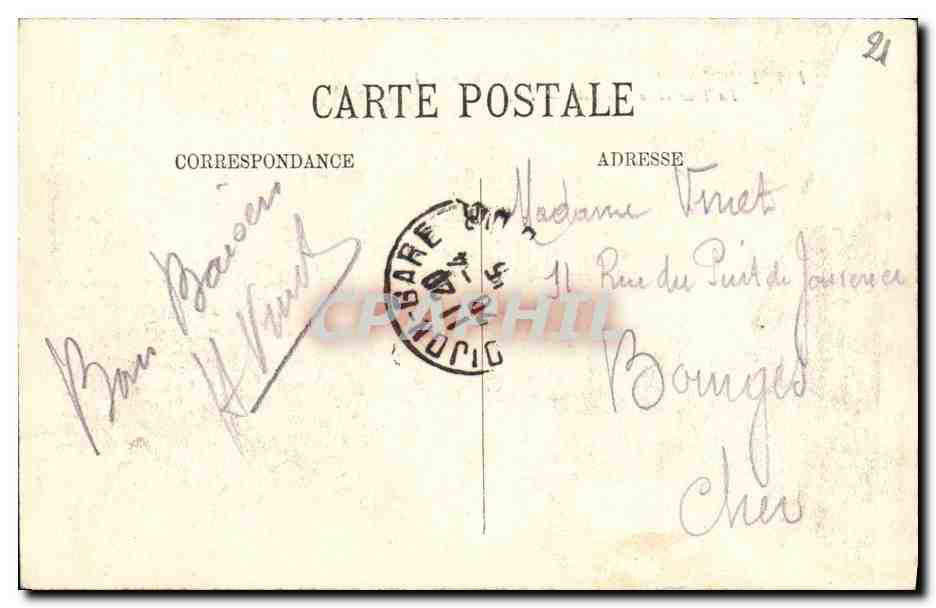 21
CARTE POSTALE
CORRESPONDANCE
ADRESSE
Bons Baisers
H Vinet
DIJON-GARE
CPAPHIL
Madame Vinet
11 Rue du Puit de
Bourges
Cher